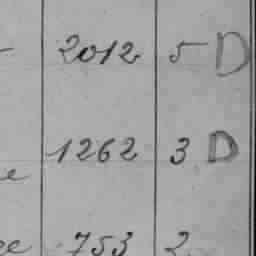 2012 5 D
1262 3 D
e
753 2